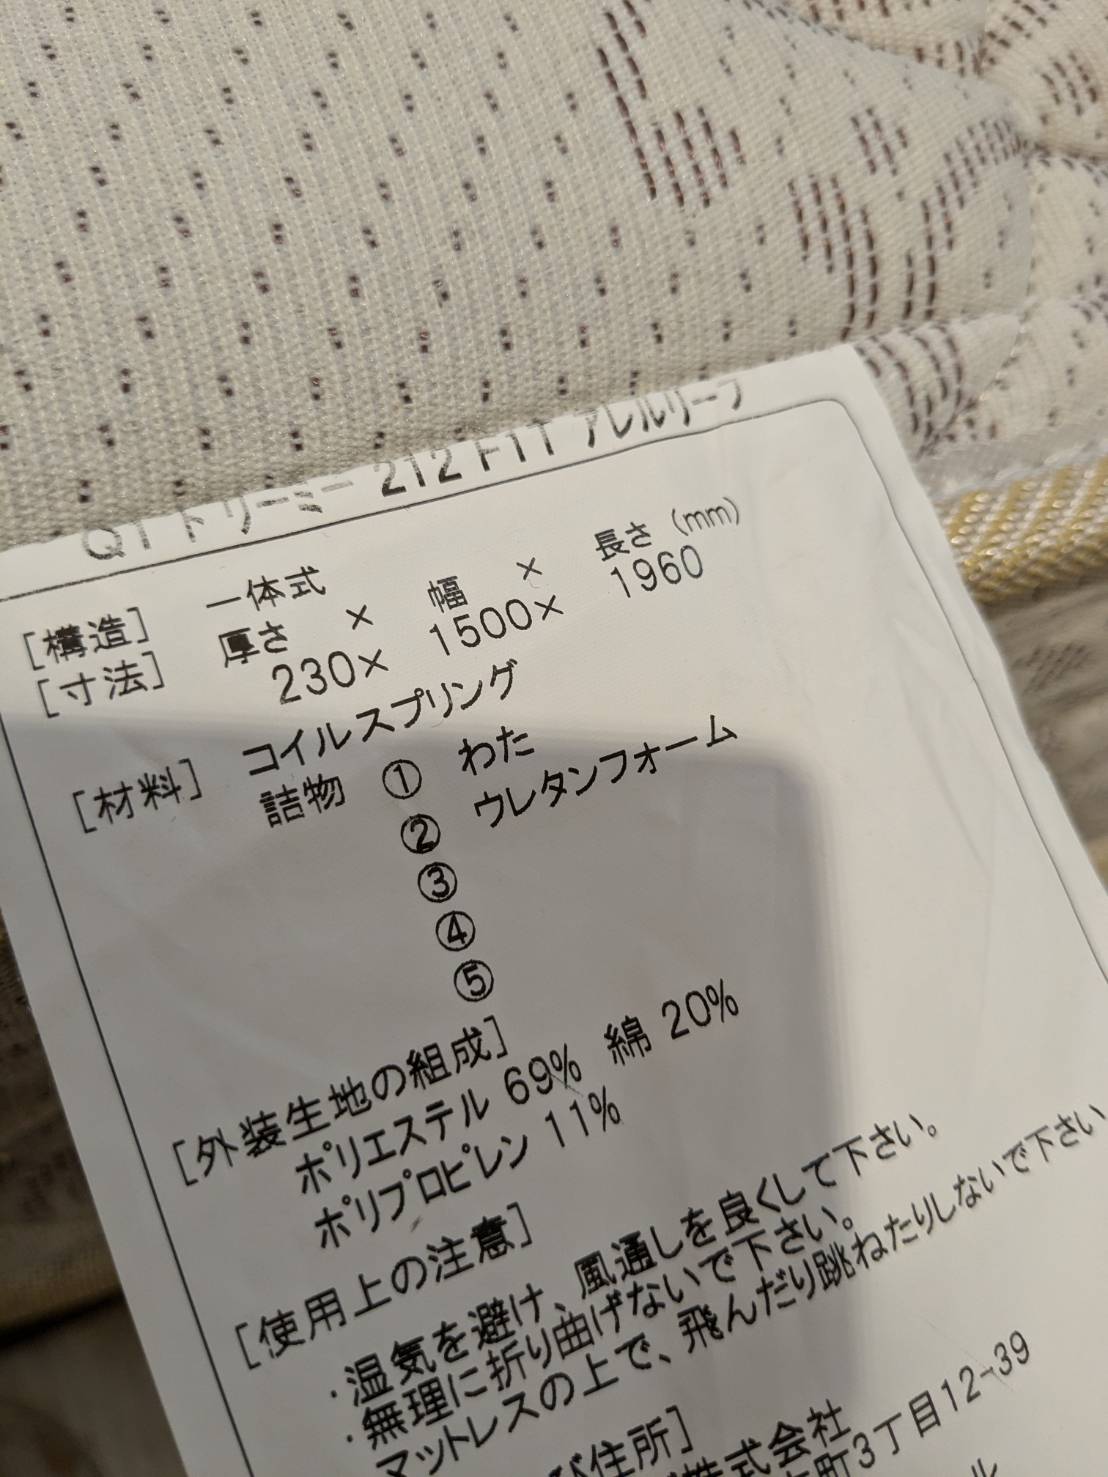 Q1 ドリーミー 212 F1T アレルリーフ
[構造] 一体式
[寸法] 厚さ × 幅 × 長さ (mm)
230× 1500× 1960
[材料] コイルスプリング
詰物 ① わた
② ウレタンフォーム
③
④
⑤
[外装生地の組成]
ポリエステル 69% 綿 20%
ポリプロピレン 11%
[使用上の注意]
・湿気を避け、風通しを良くして下さい。
・無理に折り曲げないで下さい。
マットレスの上で、飛んだり跳ねたりしないで下さい
び住所]
株式会社
町3丁目12-39